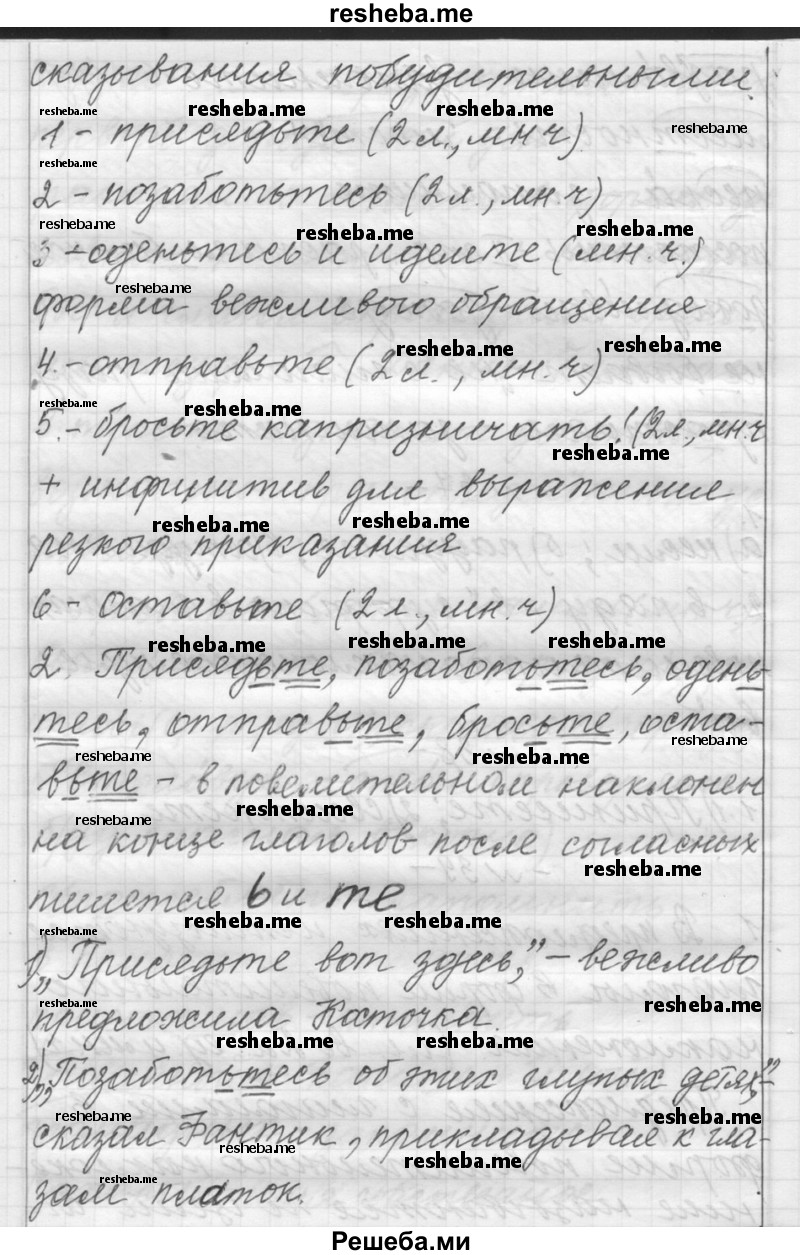 resheba.me
сказывания побудительными.
1 - присядьте (2 л., мн ч)
2 - позаботьтесь (2 л., мн. ч)
3 - оденьтесь и идемте (мн. ч.)
форма вежливого обращения
4. - отправьте (2 л., мн. ч)
5. - бросьте капризничать! (2 л., мн. ч
+ инфинитив для выражения
резкого приказания
6 - Оставьте (2 л., мн. ч)
2. Присядьте, позаботьтесь, одень-
тесь, отправьте, бросьте, оста-
вьте - в повелительном наклонен
на конце глаголов после согласных
пишется ь и те
1) „Присядьте вот здесь,” - вежливо
предложила Касточка.
2) „Позаботьтесь об этих глупых детях,” -
сказал Фантик, прикладывая к гла-
зам платок.
Решеба.ми